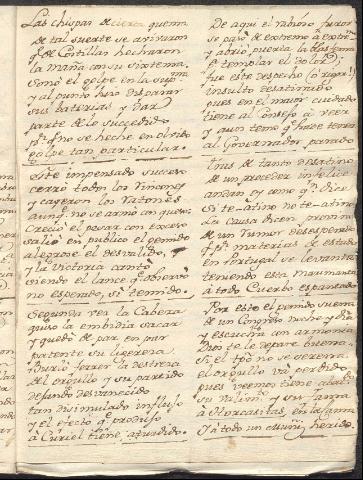 Las chispas de
de tal suerte se avivaron
q.e de Cortillas hecharon
la maña con su sixtema.
Sonó el golpe en la sup.ma
y al punto hizo disparar
sus baterias y dar
parte de lo succedido
p.r q.e no se heche en olvido
golpe tan particular.
Este impensado suceso
cerró todos los rincones
y cayeron los ratones
aunq.e no se armó con queso:
Creció el pesar con exceso
salió en publico el gemido
alegrose el desvalido
y la victoria cantó
viendo el lance q.e
no esperado, si temido.
Segunda vez la Cabeza
quiso la embidia sacar
y quedó de par en par
patente su ligereza
Burló ferrer la destreza
del orgullo y su partido
dejando desvanecido
tan disimulado influjo
y el efecto q.e produjo
à Curiel tiene aturdido.
De aqui el rabioso furor
se pasó de extremo à extremo
y abrió puerta
fue este despecho (ó rigor!)
insulto desatinado
pues en el maior cuidado
tiene al Consejo à
y aun temo q.e hace temer
al Governador pasado
Tras de tanto desatino
de un proceder infelice
andan oy como q.e dice
Si te-atino no te-atino
la Causa dicen provino
de un rumor desesperado
q.e p.r materias de estado
en Portugal se levanta
teniendo esta marimanta
à todo Cuerbo espantado
Por esto el partido suena
de un Congreso noche y dia
y escucha con armonia
Dios se la depare buena.
Si el tpõ no se serena
el orgullo va perdido
pues veemos tiene
su valim.to y su
à Horcasitas, en la
y à todo un Muñiz herido.